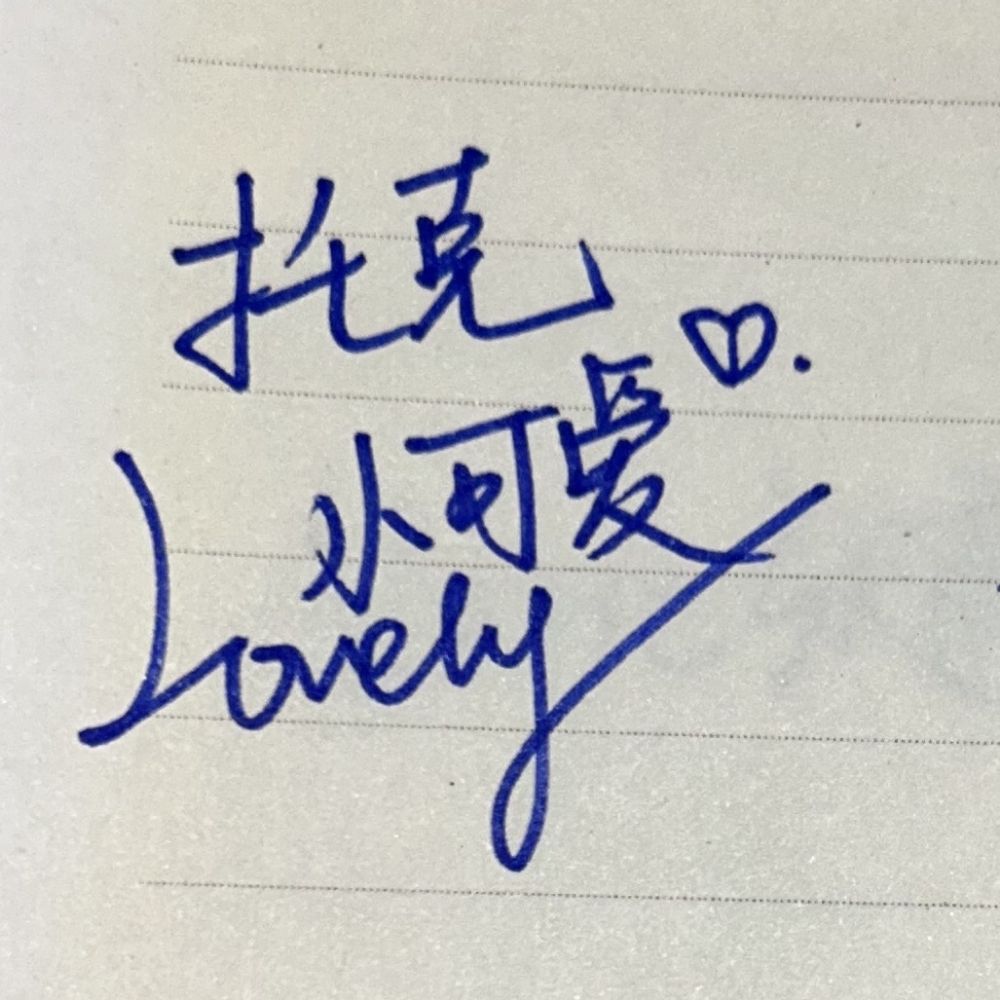 托克
小可爱
Lovely